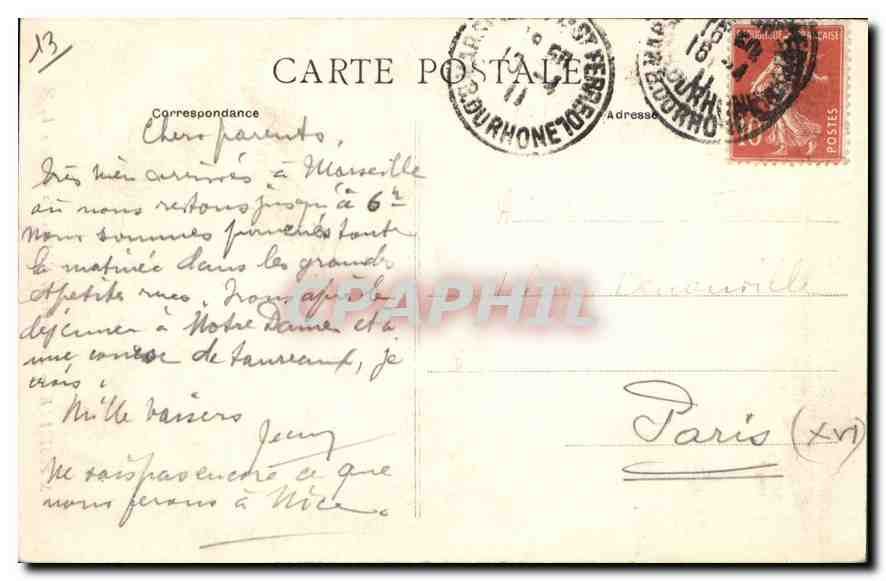 13
CARTE POSTALE
Correspondance
Adresse
Chers parents,
Très bien arrivés à Marseille
où nous restons jusqu'à 6h
Nous sommes promenés toute
la matinée dans les grandes
et petites rues. Irons après le
déjeuner à Notre Dame et à
une course de taureaux, je
crois.
Mille baisers
Jenny
Ne sais pas encore ce que
nous ferons à Nice.
Paris (XVI)
CPAPHIL
REPUBLIQUE FRANÇAISE
10
POSTES
MARSEILLE ST FERREOL
B. DU RHONE
11
MARSEILLE ST FERREOL
B. DU RHONE
11